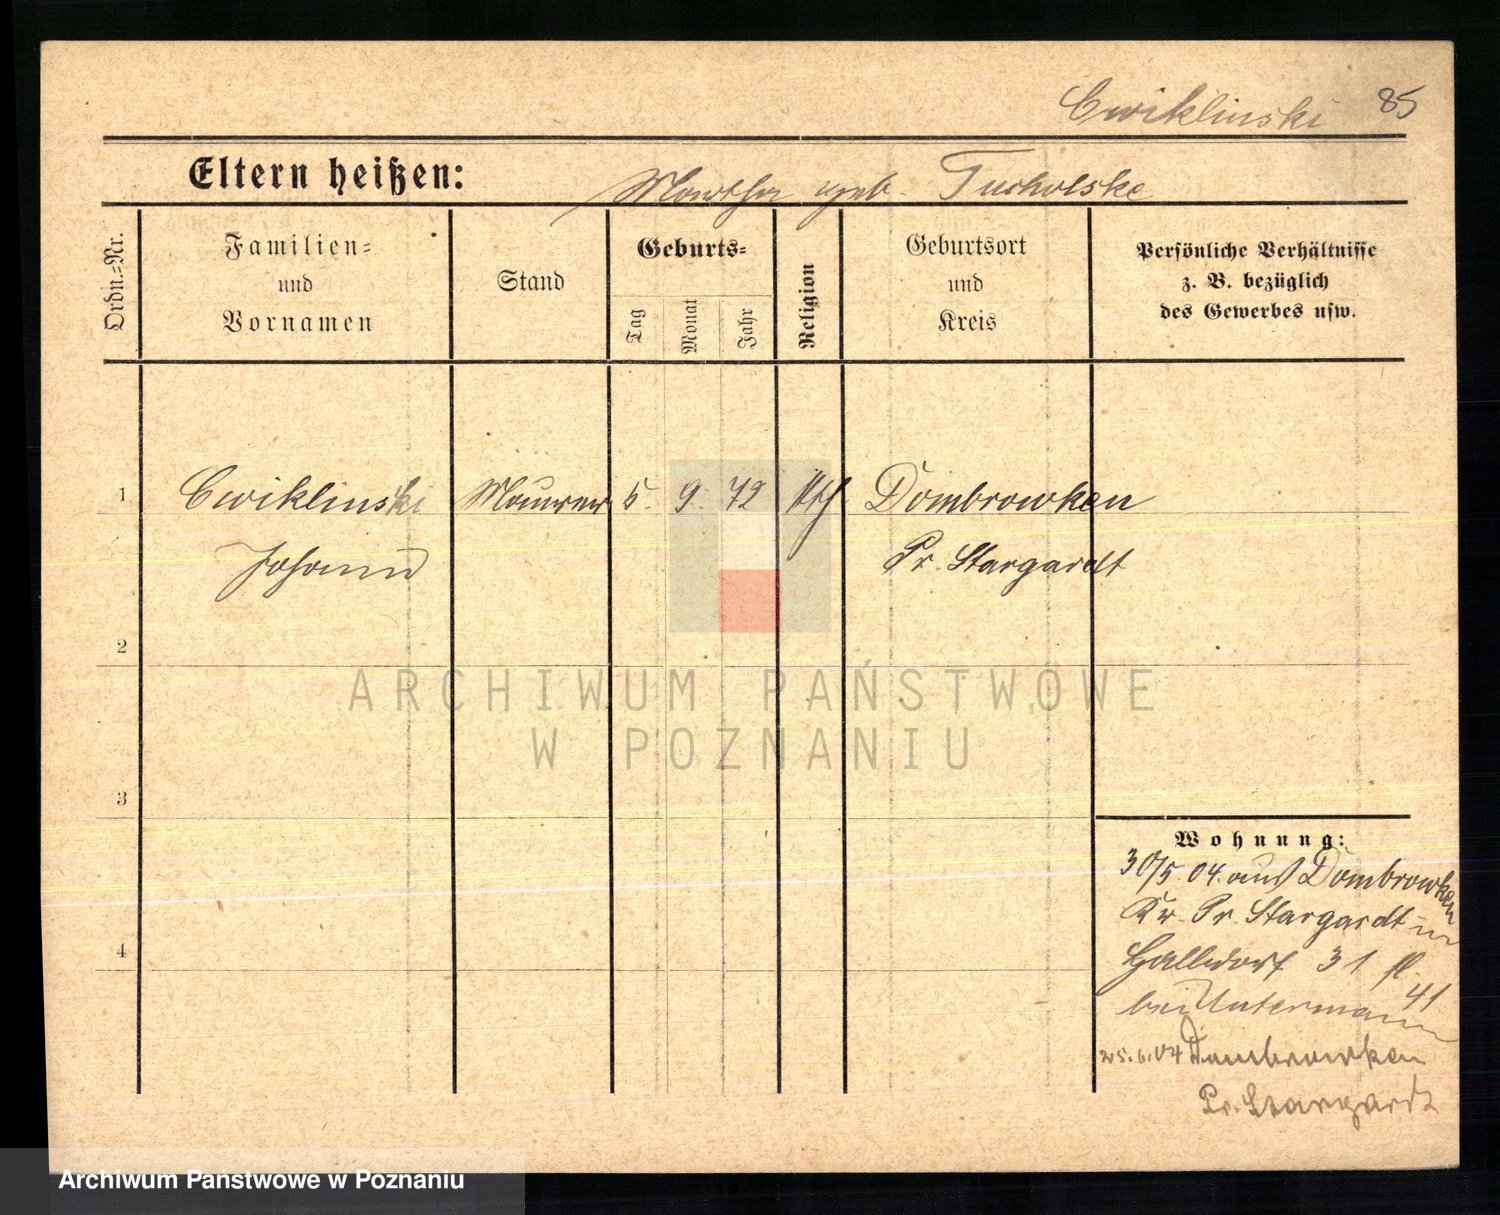 Cwiklinski 85
Eltern heißen: Martha geb. Tucholske
Ordn.=Nr.
Familien=
und
Vornamen
Stand
Geburts=
Tag
Monat
Jahr
Religion
Geburtsort
und
Kreis
Persönliche Verhältnisse
z. B. bezüglich
des Gewerbes usw.
1 Cwiklinski Maurer 5. 9. 72 kth Dombrowken
Johann Pr. Stargardt
2
3
4
Wohnung:
30/5. 04. aus Dombrowken
Kr. Pr. Stargardt in
Halldorf 31
41
bei Untermann
25.6.04 Dombrowken
Pr. Stargardt
ARCHIWUM PAŃSTWOWE
W POZNANIU
Archiwum Państwowe w Poznaniu